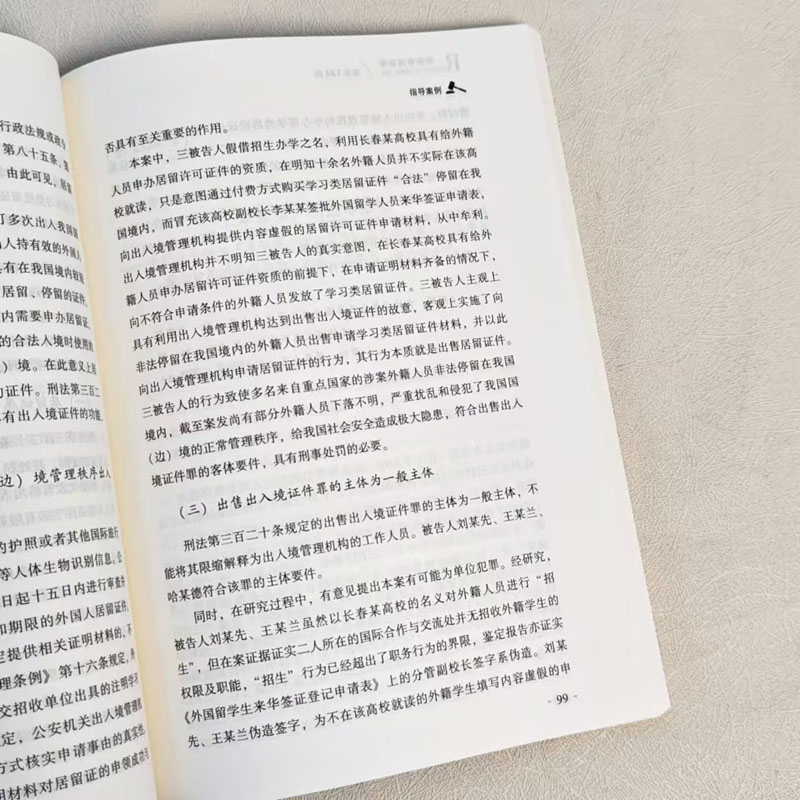 行政法规或政令
第八十五条、第
由此可见，居留
多次出入我国
出入人持有效的外国人
具有在我国境内较
居留、停留的证件，
内需要申办居留证，
的合法入境时使用的
（边）境。在此意义上居
证件。刑法第三百二
有出入境证件的功能，
（边）境管理秩序出入
的护照或者其他国际旅行
等人体生物识别信息。公
日起十五日内进行审查并
和期限的外国人居留证件。
提供相关证明材料的，不
理条例》第十六条规定，外
交招收单位出具的注明学
定，公安机关出入境管理
方式核实申请事由的真实性。
明材料对居留证的申领成功与
指导案例
否具有至关重要的作用。
本案中，三被告人假借招生办学之名，利用长春某高校具有给外籍
人员申办居留许可证件的资质，在明知十余名外籍人员并不实际在该高
校就读，只是意图通过付费方式购买学习类居留证件“合法”停留在我
国境内，而冒充该高校副校长李某某签批外国留学人员来华签证申请表，
向出入境管理机构提供内容虚假的居留许可证件申请材料，从中牟利。
出入境管理机构并不明知三被告人的真实意图，在长春某高校具有给外
籍人员申办居留许可证件资质的前提下，在申请证明材料齐备的情况下，
向不符合申请条件的外籍人员发放了学习类居留证件。三被告人主观上
具有利用出入境管理机构达到出售出入境证件的故意，客观上实施了向
非法停留在我国境内的外籍人员出售申请学习类居留证件材料，并以此
向出入境管理机构申请居留证件的行为，其行为本质就是出售居留证件。
三被告人的行为致使多名来自重点国家的涉案外籍人员非法停留在我国
境内，截至案发尚有部分外籍人员下落不明，严重扰乱和侵犯了我国国
（边）境的正常管理秩序，给我国社会安全造成极大隐患，符合出售出入
境证件罪的客体要件，具有刑事处罚的必要。
（三）出售出入境证件罪的主体为一般主体
刑法第三百二十条规定的出售出入境证件罪的主体为一般主体，不
能将其限缩解释为出入境管理机构的工作人员。被告人刘某先、王某兰、
哈某德符合该罪的主体要件。
同时，在研究过程中，有意见提出本案有可能为单位犯罪。经研究，
被告人刘某先、王某兰虽然以长春某高校的名义对外籍人员进行“招
生”，但在案证据证实二人所在的国际合作与交流处并无招收外籍学生的
权限及职能，“招生”行为已经超出了职务行为的界限，鉴定报告亦证实
《外国留学生来华签证登记申请表》上的分管副校长签字系伪造。刘某
先、王某兰伪造签字，为不在该高校就读的外籍学生填写内容虚假的申
- 99 -